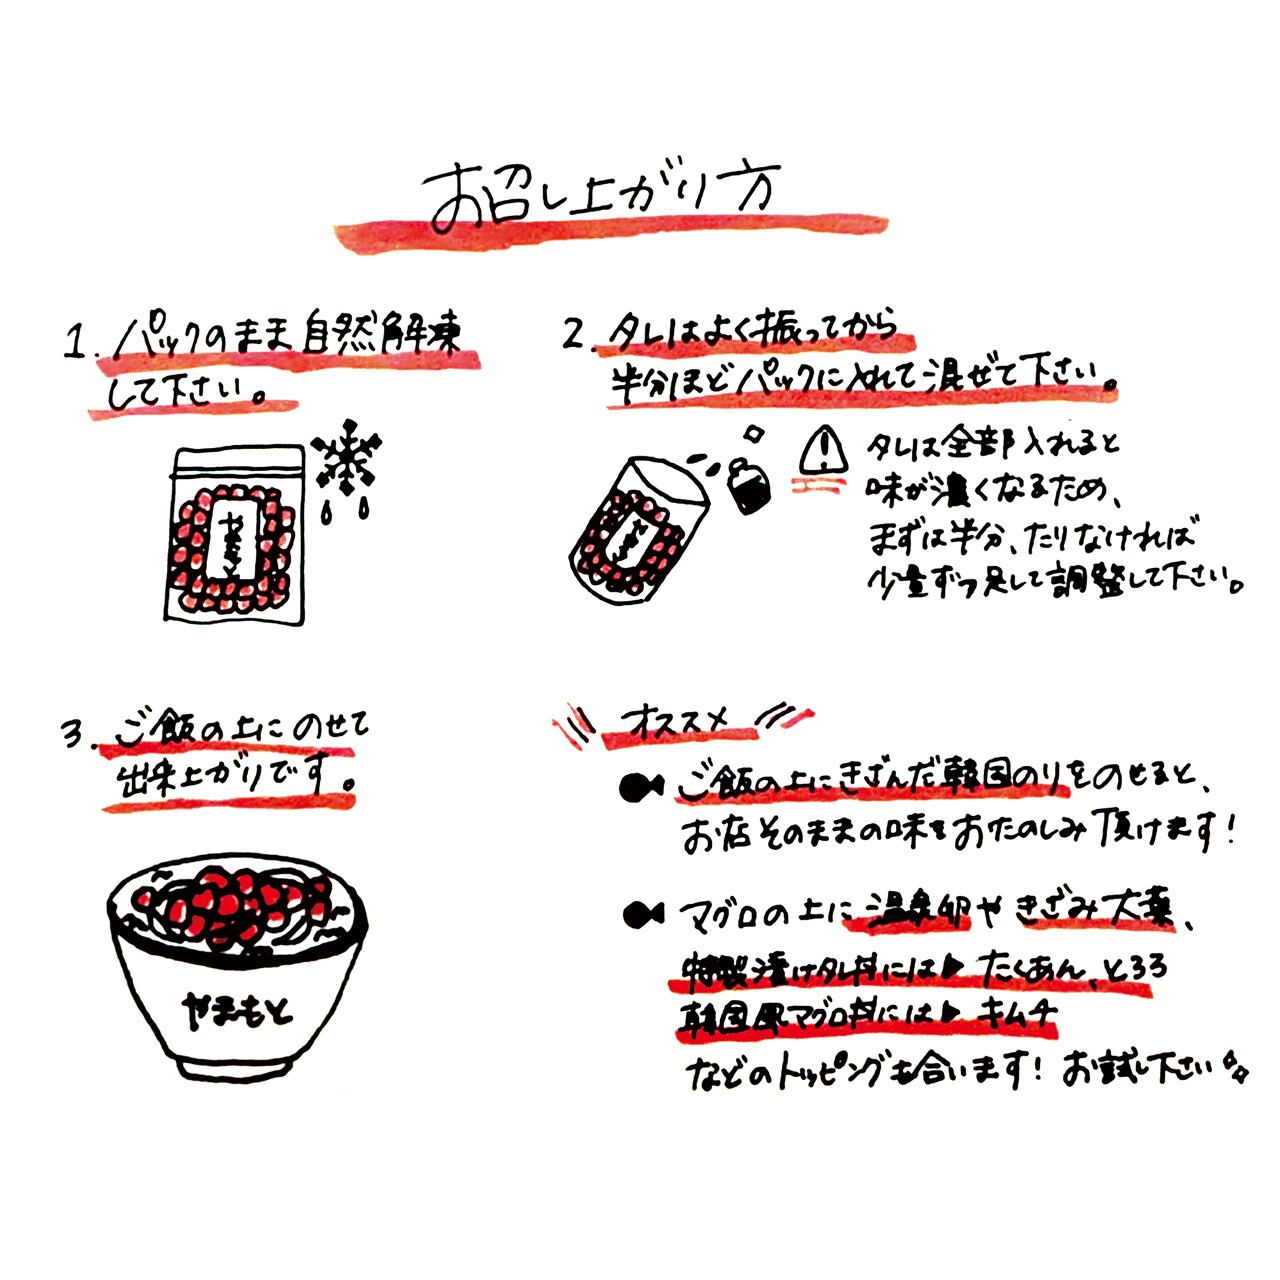 お召し上がり方
1. パックのまま自然解凍
して下さい。
やまもと
2. タレはよく振ってから
半分ほどパックに入れて混ぜて下さい。
やまもと
タレは全部入れると
味が濃くなるため、
まずは半分、たりなければ
少量ずつ足して調整して下さい。
3. ご飯の上にのせて
出来上がりです。
やまもと
オススメ
ご飯の上にきざんだ韓国のりをのせると、
お店そのままの味をおたのしみ頂けます!
マグロの上に温泉卵やきざみ大葉、
特製漬けタレ丼には▶ たくあん、とろろ
韓国風マグロ丼には▶ キムチ
などのトッピングも合います! お試し下さい